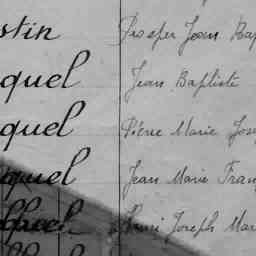 stin Prosper Jean Bap
quel Jean Baptiste
quel Pierre Marie Jose
quel Jean Marie Fran
Henri Joseph Mar